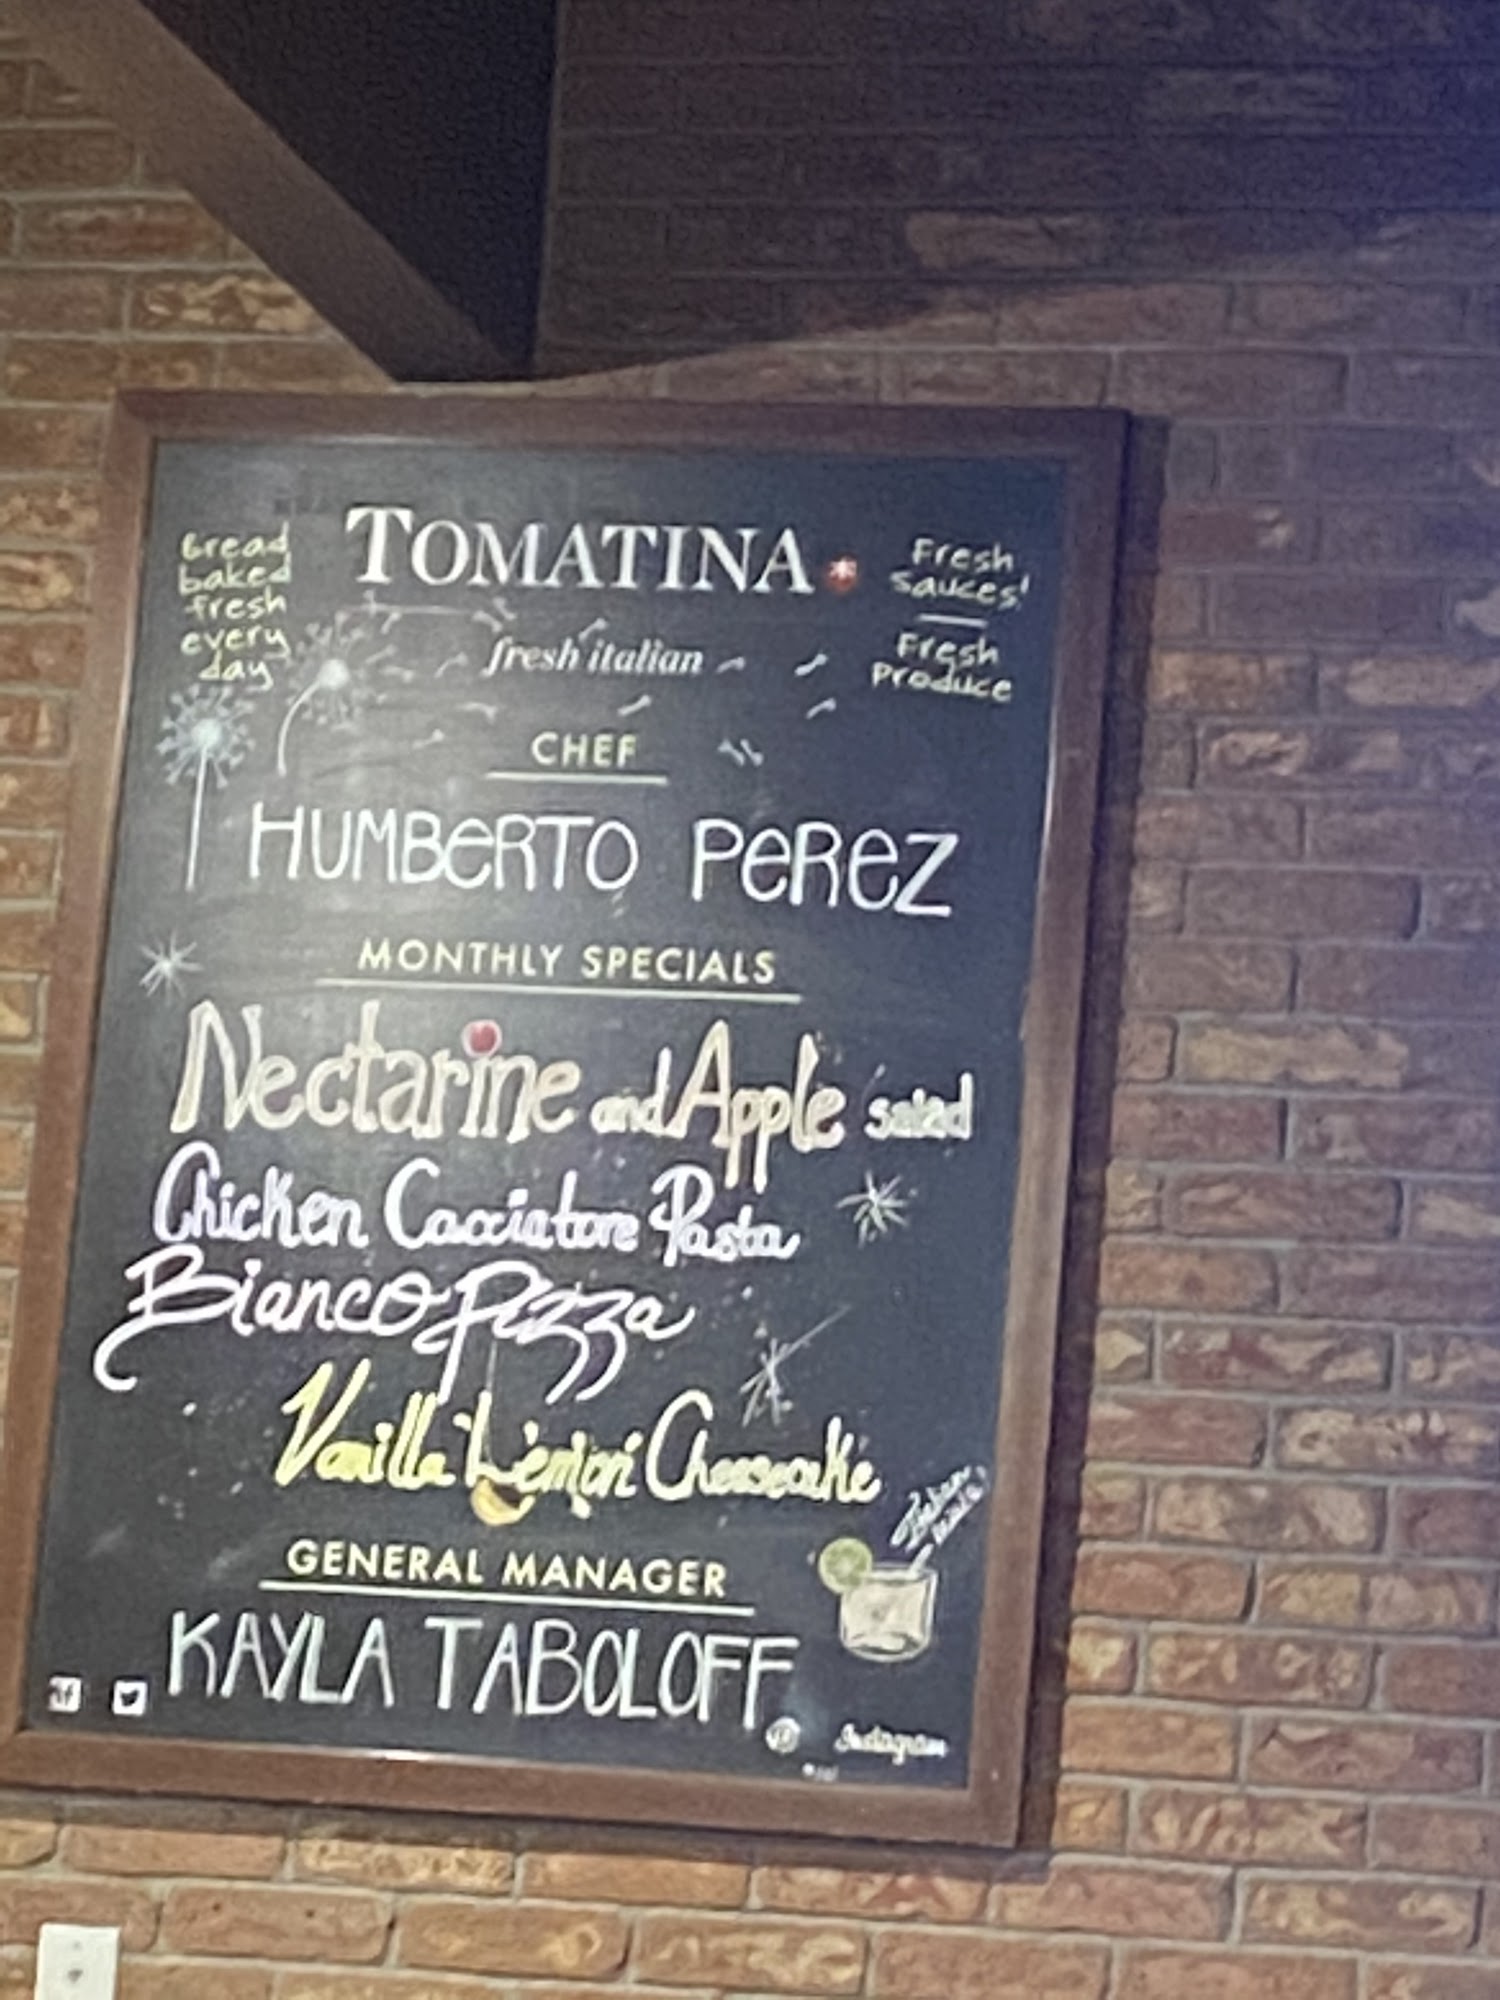 Bread
baked
fresh
every
day
TOMATINA
fresh italian
Fresh
Sauces!
Fresh
Produce
CHEF
HUMBERTO PEREZ
MONTHLY SPECIALS
Nectarine and Apple salad
Chicken Cacciatore Pasta
Bianco Pizza
Vanilla Lemon Cheesecake
GENERAL MANAGER
KAYLA TABOLOFF
Instagram